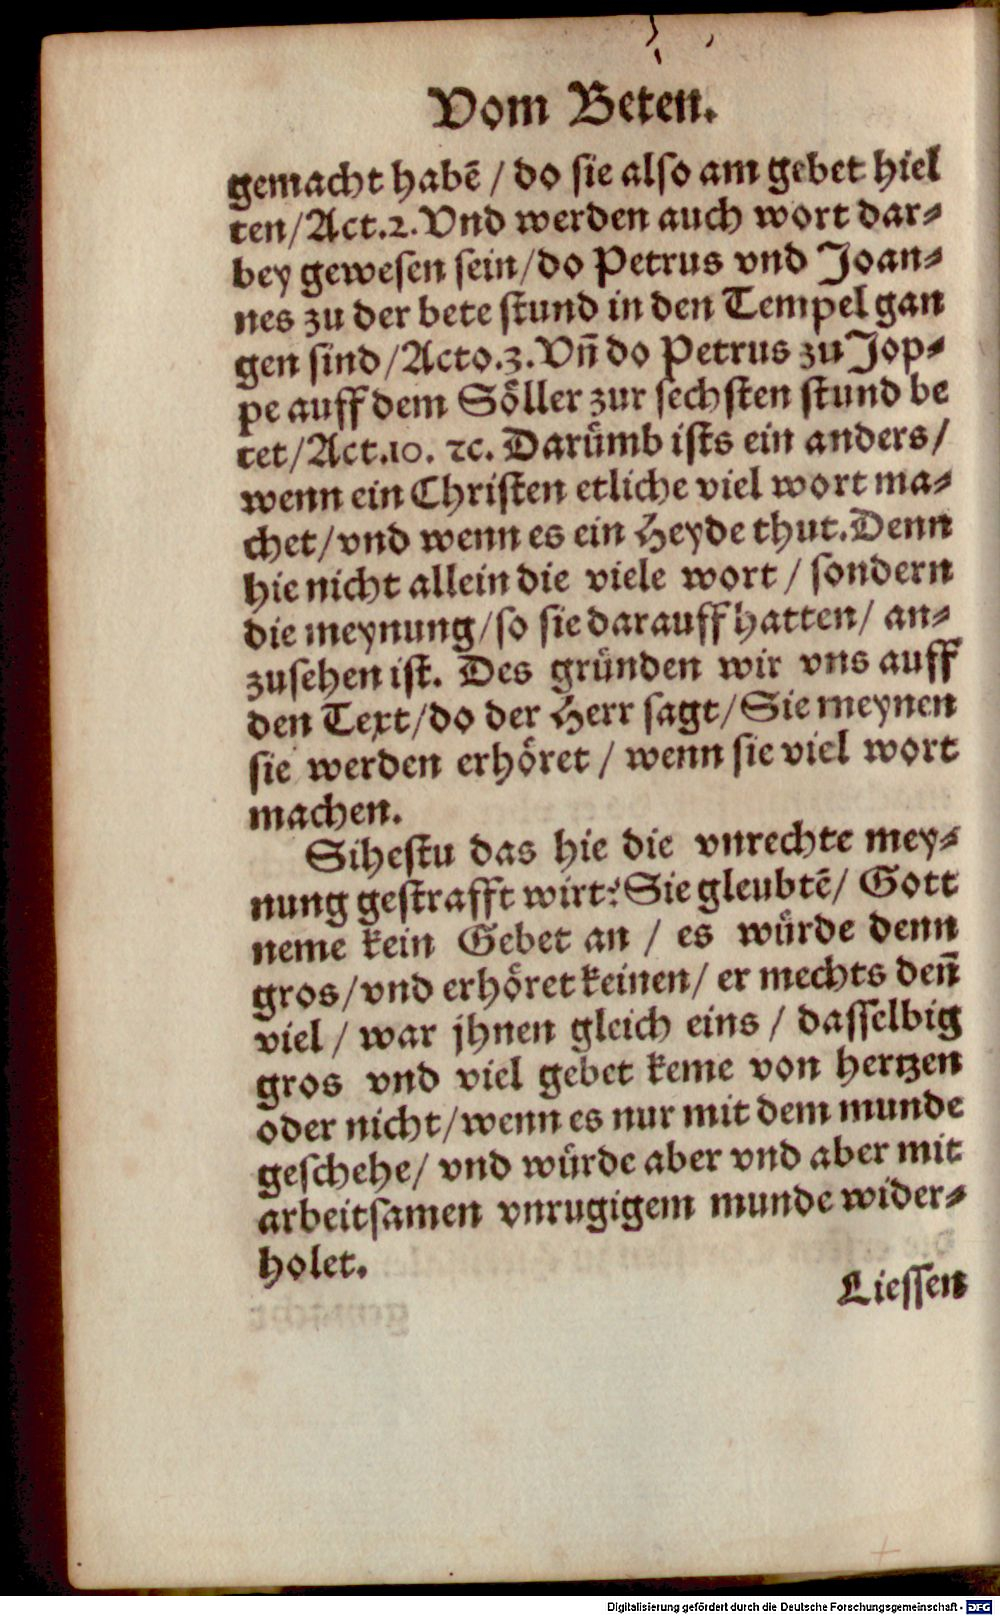 Vom Beten.
gemacht habē / do sie also am gebet hiel
ten / Act. 2. Vnd werden auch wort dar-
bey gewesen sein / do Petrus vnd Joan-
nes zu der bete stund in den Tempel gan
gen sind / Acto. 3. Vñ do Petrus zu Jop-
pe auff dem Söller zur sechsten stund be
tet / Act. 10. ꝛc. Darümb ists ein anders /
wenn ein Christen etliche viel wort ma-
chet / vnd wenn es ein Heyde thut. Denn
hie nicht allein die viele wort / sondern
die meynung / so sie darauff hatten / an-
zusehen ist. Des gründen wir vns auff
den Text / do der Herr sagt / Sie meynen
sie werden erhöret / wenn sie viel wort
machen.
Sihestu das hie die vnrechte mey-
nung gestrafft wirt? Sie gleubtē / Gott
neme kein Gebet an / es würde denn
gros / vnd erhöret keinen / er mechts deñ
viel / war jhnen gleich eins / dasselbig
gros vnd viel gebet keme von hertzen
oder nicht / wenn es nur mit dem munde
geschehe / vnd würde aber vnd aber mit
arbeitsamen vnrugigem munde wider-
holet.
Liessen
Digitalisierung gefördert durch die Deutsche Forschungsgemeinschaft - DFG